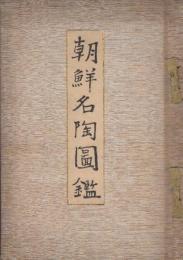 朝鮮名陶圖鑑